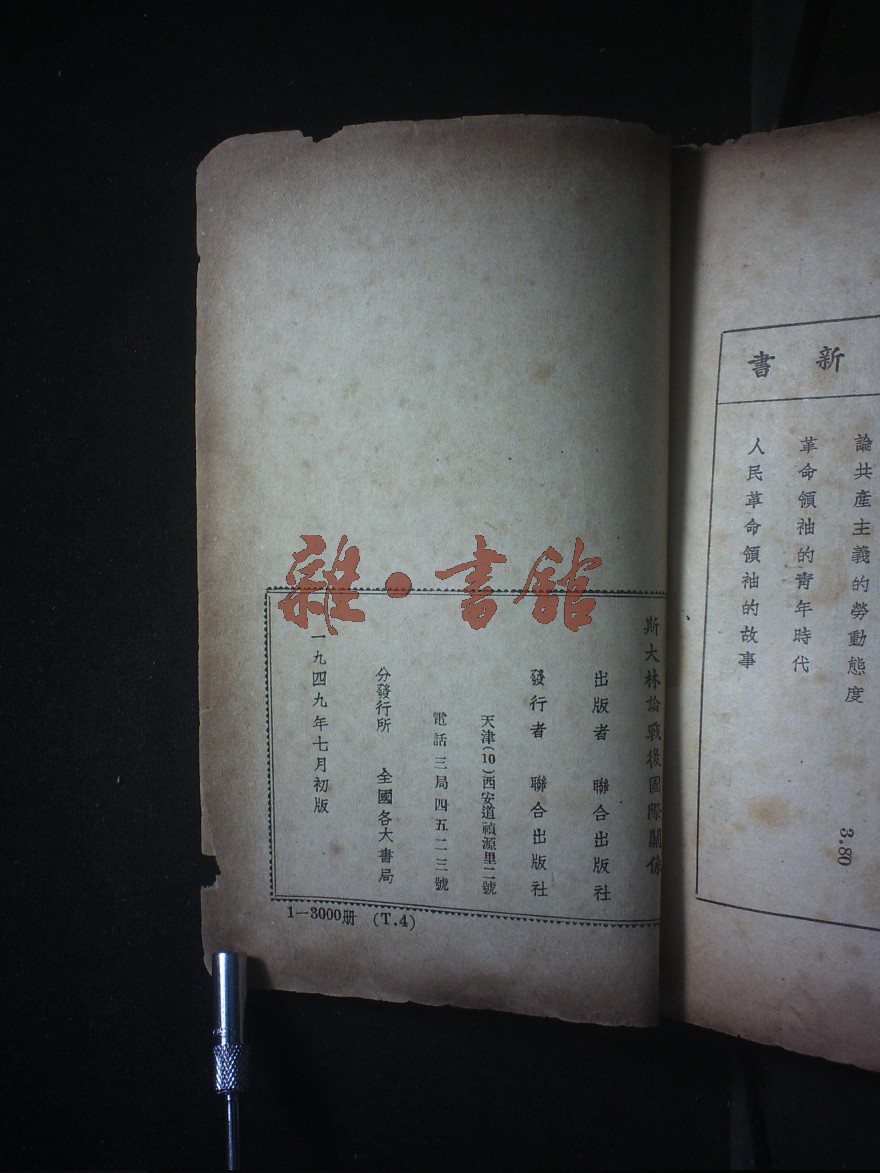 新書
論共產主義的勞動態度 3.80
革命領袖的青年時代
人民革命領袖的故事
雜·書館
斯大林論戰後國際關係
出版者 聯合出版社
發行者 聯合出版社
天津(10)西安道禎源里二號
電話三局四五二三號
分發行所 全國各大書局
一九四九年七月初版
1—3000册 (T.4)